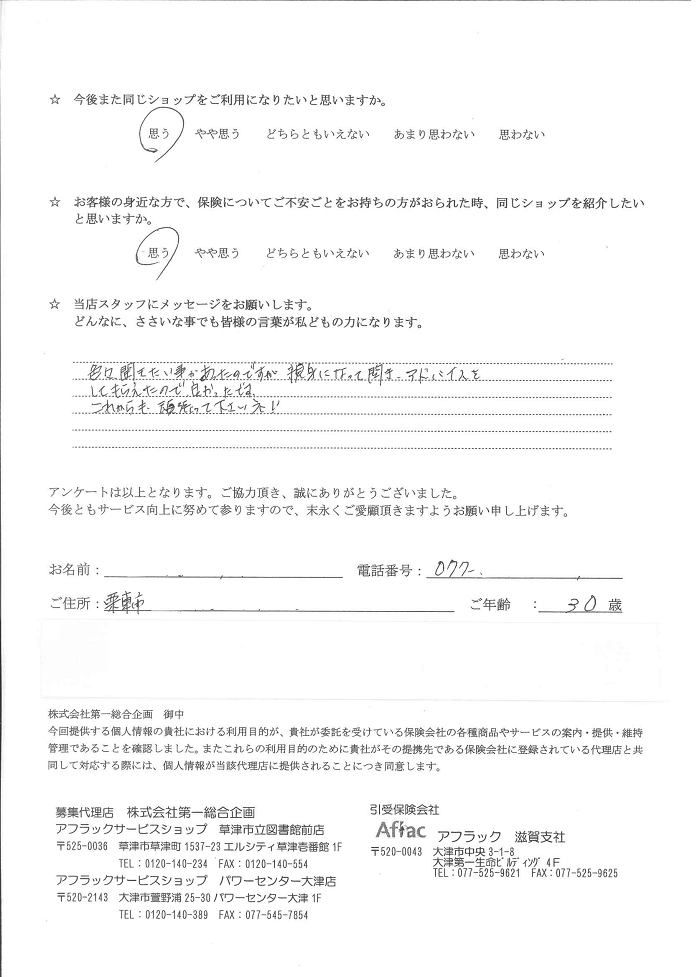 ☆ 今後また同じショップをご利用になりたいと思いますか。
思う やや思う どちらともいえない あまり思わない 思わない
☆ お客様の身近な方で、保険についてご不安ごとをお持ちの方がおられた時、同じショップを紹介したい
と思いますか。
思う やや思う どちらともいえない あまり思わない 思わない
☆ 当店スタッフにメッセージをお願いします。
どんなに、ささいな事でも皆様の言葉が私どもの力になります。
色々聞きたい事があったのですが 親身になって聞き、アドバイスを
してもらえたので良かったです。
これからも 頑張って下さい!
アンケートは以上となります。ご協力頂き、誠にありがとうございました。
今後ともサービス向上に努めて参りますので、末永くご愛顧頂きますようお願い申し上げます。
お名前： 電話番号：077-
ご住所：栗東市 ご年齢 ：30歳
株式会社第一総合企画 御中
今回提供する個人情報の貴社における利用目的が、貴社が委託を受けている保険会社の各種商品やサービスの案内・提供・維持
管理であることを確認しました。またこれらの利用目的のために貴社がその提携先である保険会社に登録されている代理店と共
同して対応する際には、個人情報が当該代理店に提供されることにつき同意します。
募集代理店 株式会社第一総合企画
アフラックサービスショップ 草津市立図書館前店
〒525-0036 草津市草津町1537-23 エルシティ草津壱番館1F
TEL：0120-140-234 FAX：0120-140-554
アフラックサービスショップ パワーセンター大津店
〒520-2143 大津市萱野浦25-30 パワーセンター大津1F
TEL：0120-140-389 FAX：077-545-7854
引受保険会社
Aflac アフラック 滋賀支社
〒520-0043 大津市中央3-1-8
大津第一生命ﾋﾞﾙﾃﾞｨﾝｸﾞ 4F
TEL：077-525-9621 FAX：077-525-9625